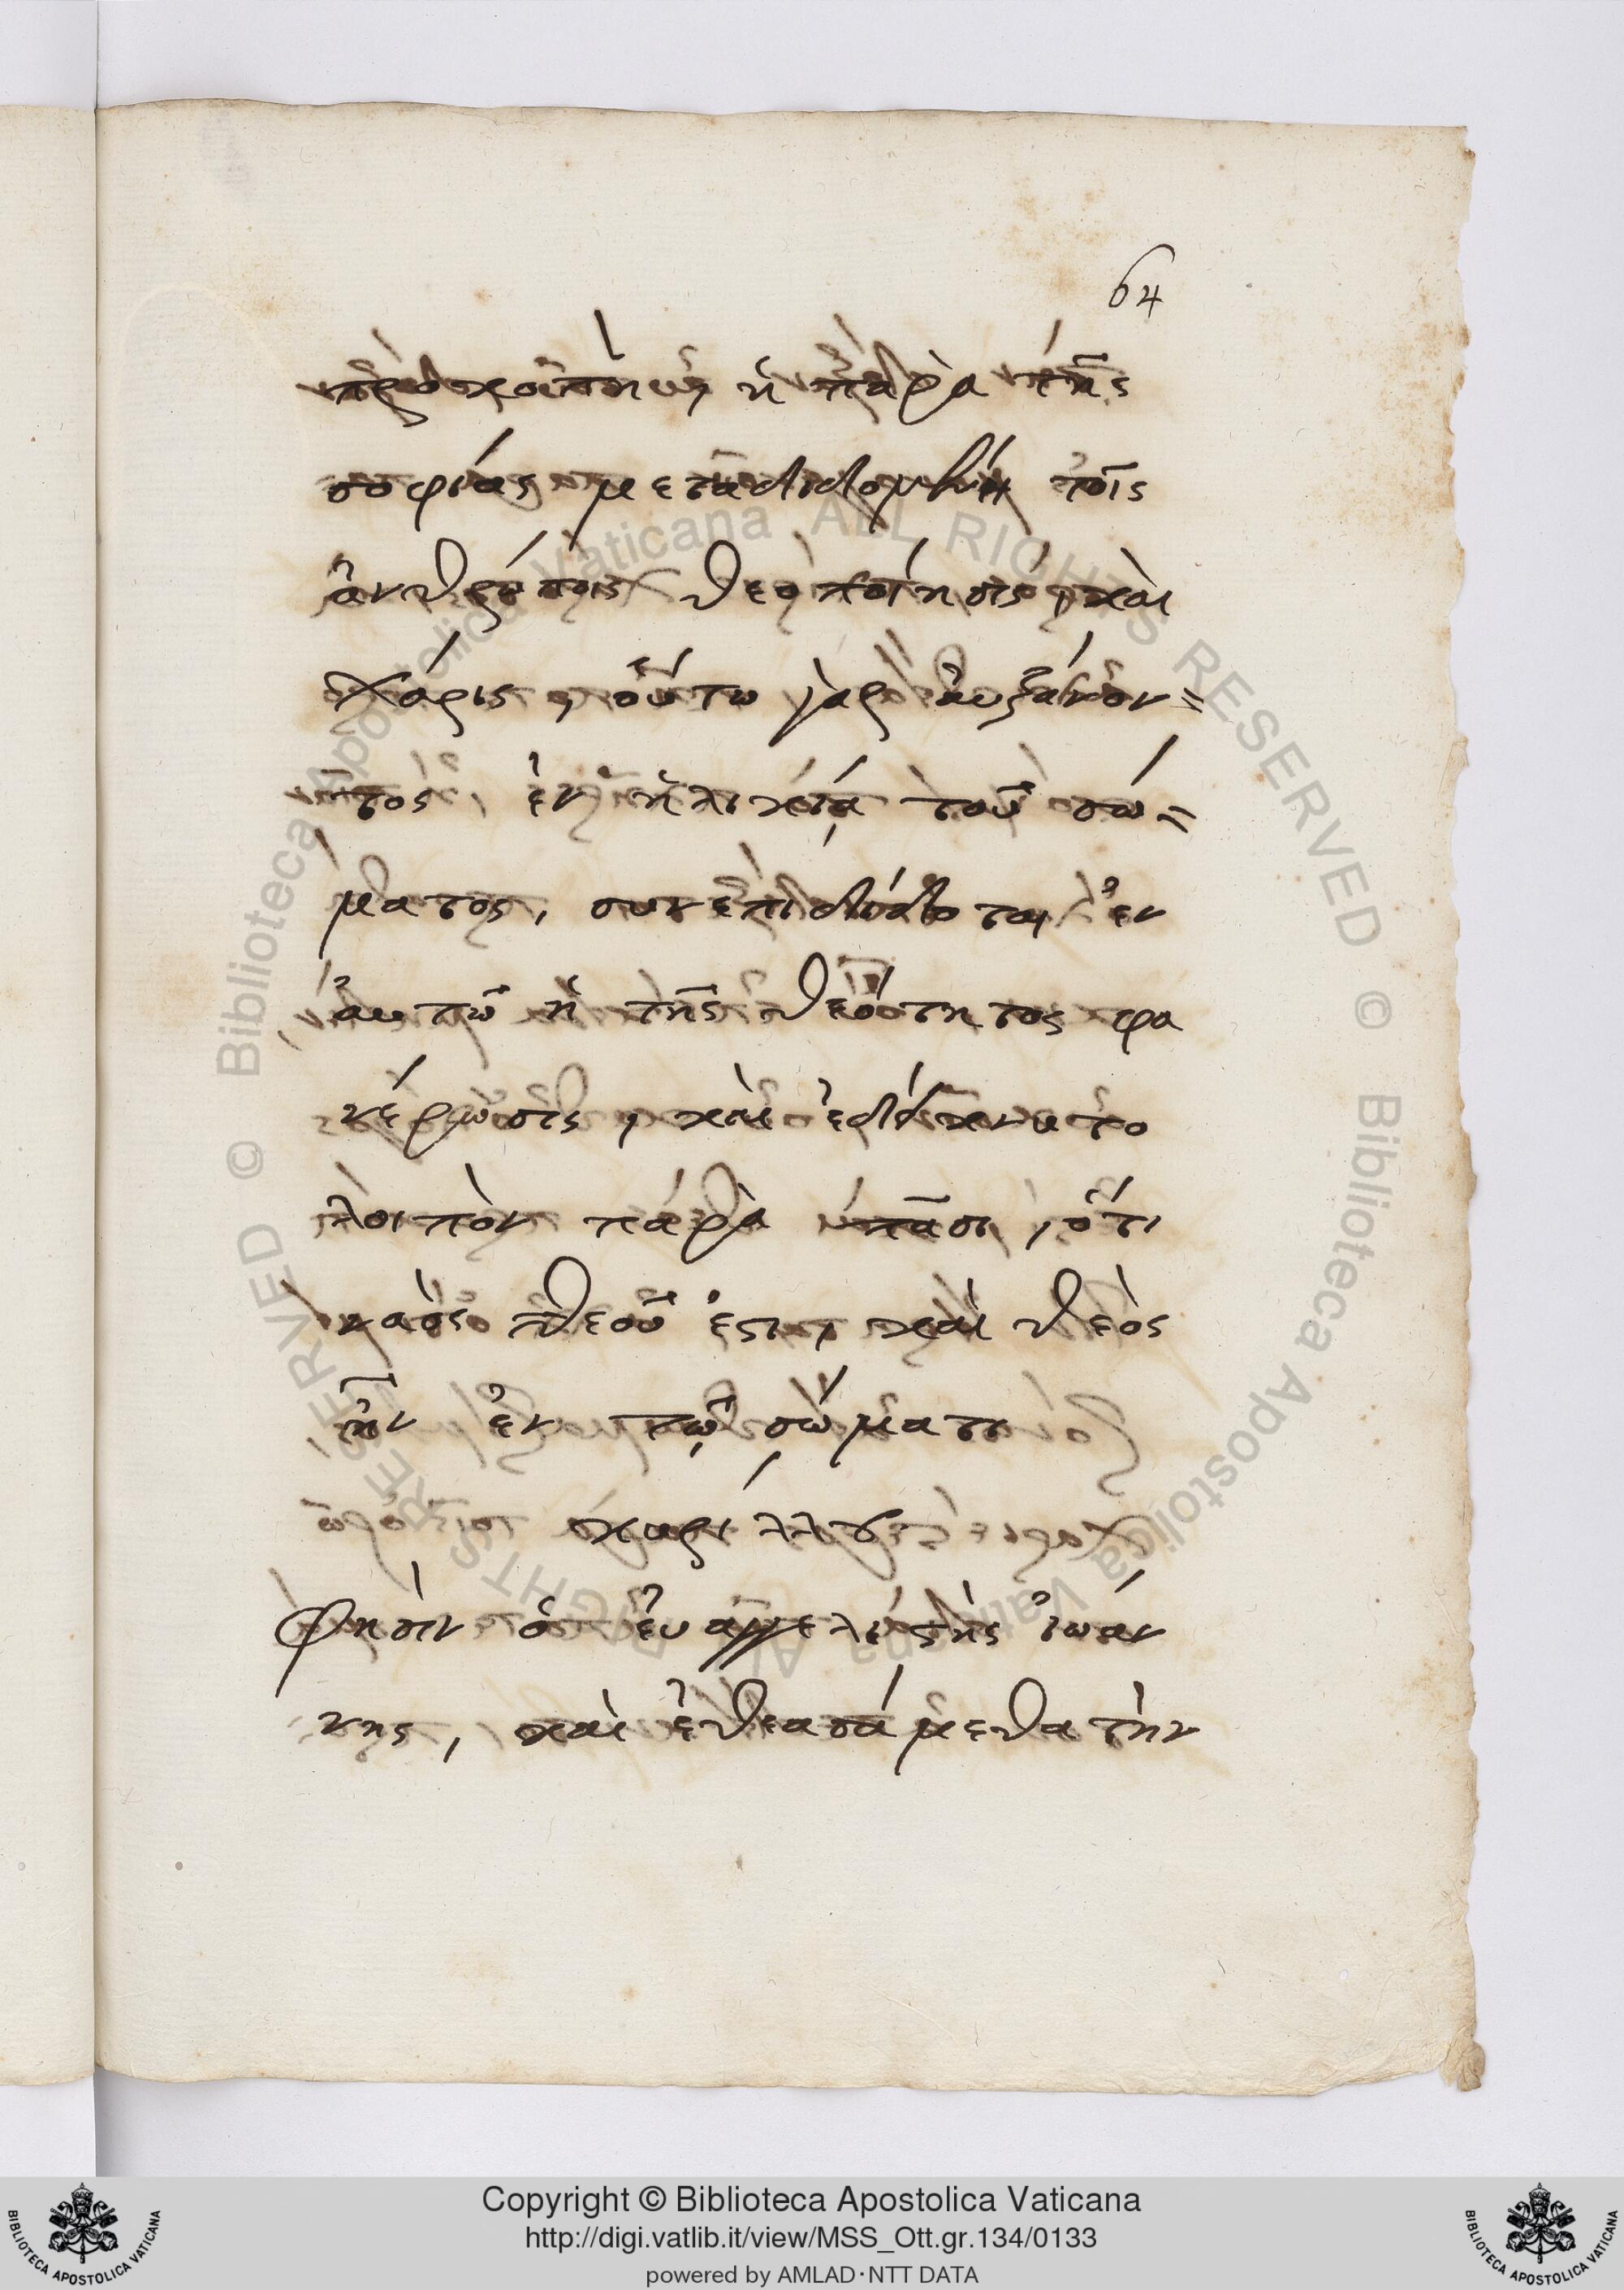 64
προκοπὴ, ἡ παρὰ τῆς
σοφίας μεταδιδομένη τοῖς
ἀνθρώποις θεοποίησις, καὶ
χάρις, οὕτω γὰρ ἀυξάνον=
τος ἐν ἡλικίᾳ τοῦ σώ=
ματος, συνεπιδίδοται ἐν
ἀυτῶ ἡ τῆς θεότητος φα
νέρωσις, καὶ ἐδίκνυτο
λοιπὸν παρὰ πᾶσι, ὅτι
ναὸς θεοῦ ἐστι, καὶ θεὸς
ἦν ἐν τῷ σώματι
κυρίλλου
Φησὶν ὁ ἐυαγγελιστὴς ἰωάν
νης, καὶ ἐθεασάμεθα τὴν
© Biblioteca Apostolica Vaticana ALL RIGHTS RESERVED © Biblioteca Apostolica Vaticana ALL RIGHTS RESERVED
Copyright © Biblioteca Apostolica Vaticana
http://digi.vatlib.it/view/MSS_Ott.gr.134/0133
powered by AMLAD·NTT DATA
BIBLIOTECA APOSTOLICA VATICANA
BIBLIOTECA APOSTOLICA VATICANA